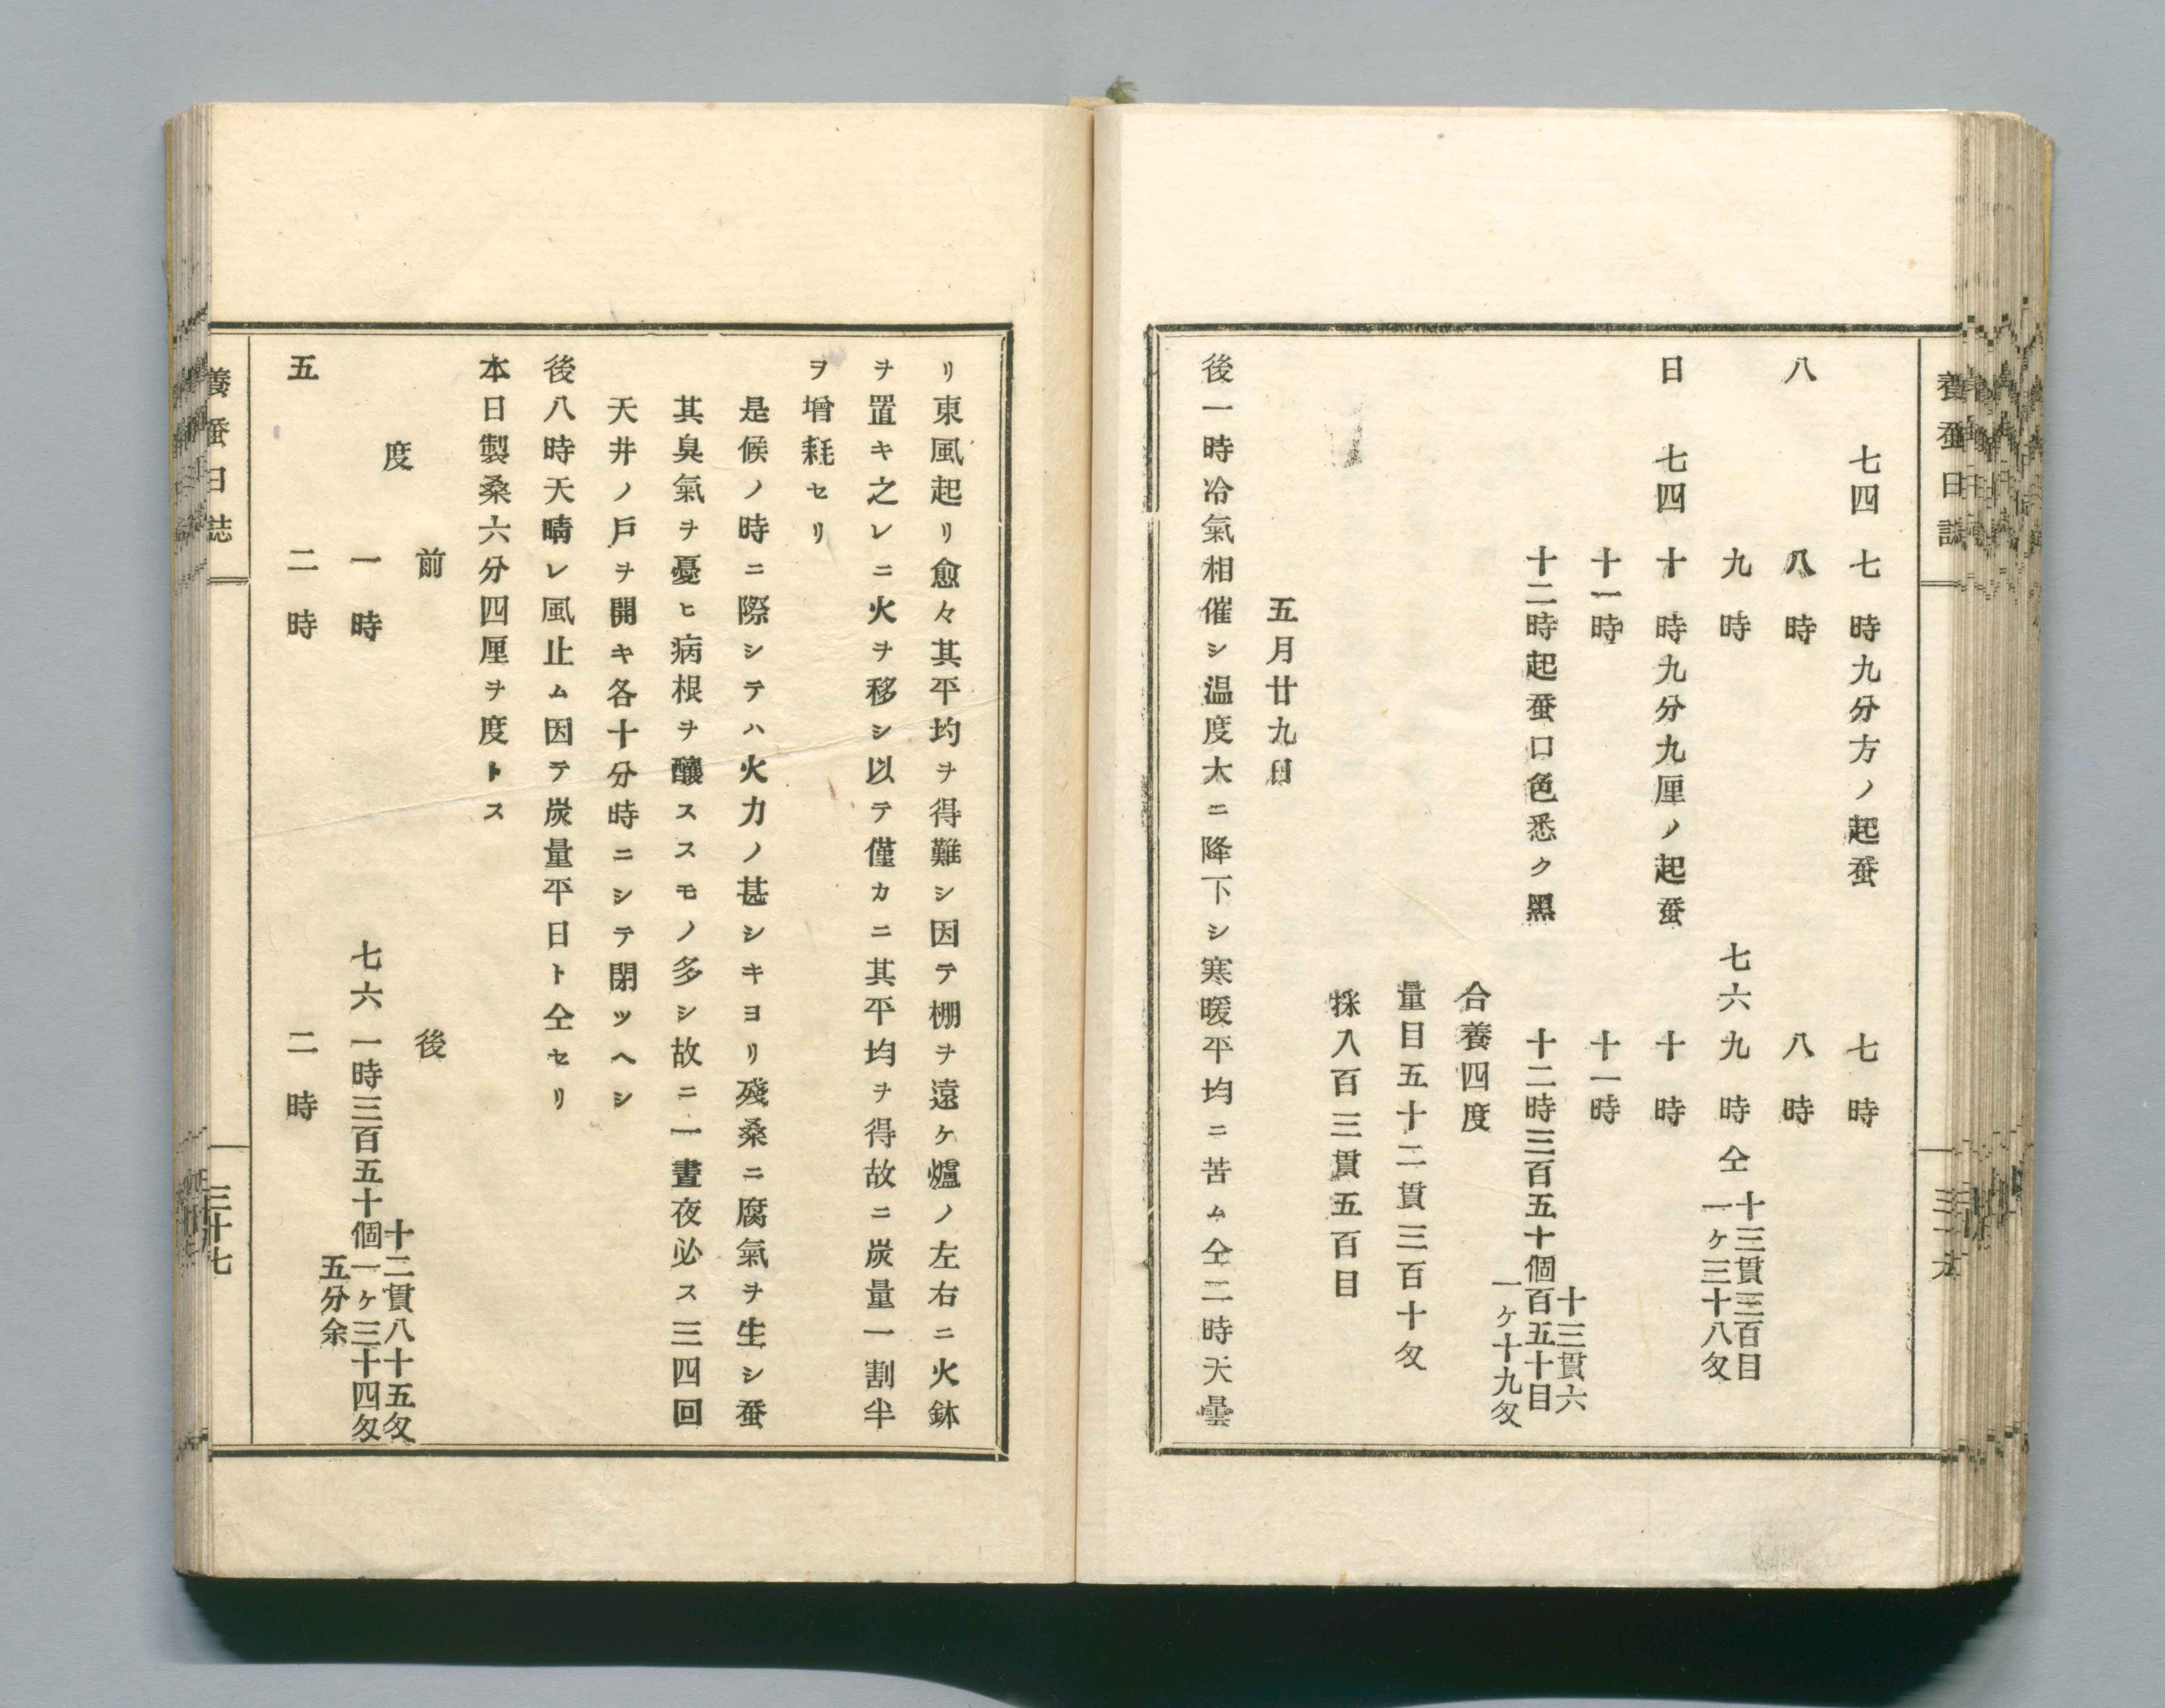 養蚕日誌
七四 七時九分方ノ起蚕 七時
八 八時 八時
九時 七六 九時仝 十三貫三百目 一ヶ三十八匁
日 七四 十時九分九厘ノ起蚕 十時
十一時 十一時
十二時起蚕口色悉ク黑 十二時三百五十個 十三貫六百五十目 一ヶ十九匁
合養四度
量目五十二貫三百十匁
採入百三貫五百目
五月廿九日
後一時冷氣相催シ温度太ニ降下シ寒暖平均ニ苦ム仝二時天曇
リ東風起リ愈々其平均ヲ得難シ因テ棚ヲ遠ケ爐ノ左右ニ火鉢
ヲ置キ之レニ火ヲ移シ以テ僅カニ其平均ヲ得故ニ炭量一割半
ヲ增耗セリ
是候ノ時ニ際シテハ火力ノ甚シキヨリ殘桑ニ腐氣ヲ生シ蚕
其臭氣ヲ憂ヒ病根ヲ釀ススモノ多シ故ニ一晝夜必ス三四回
天井ノ戸ヲ開キ各十分時ニシテ閉ツヘシ
後八時天晴レ風止ム因テ炭量平日ト仝セリ
本日製桑六分四厘ヲ度トス
前 後
度
一時 七六 一時三百五十個 十二貫八十五匁 一ヶ三十四匁五分余
五 二時 二時
養蚕日誌
三十七